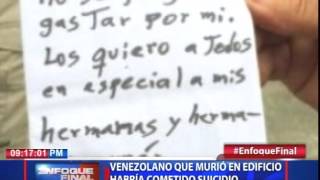 gasTar por mi.
Los quiero a Todos
en especial a mis
hermamas y herma-
#EnfoqueFinal
09:17:01 PM
ENFOQUE
FINAL
VENEZOLANO QUE MURIÓ EN EDIFICIO
HABRÍA COMETIDO SUICIDIO